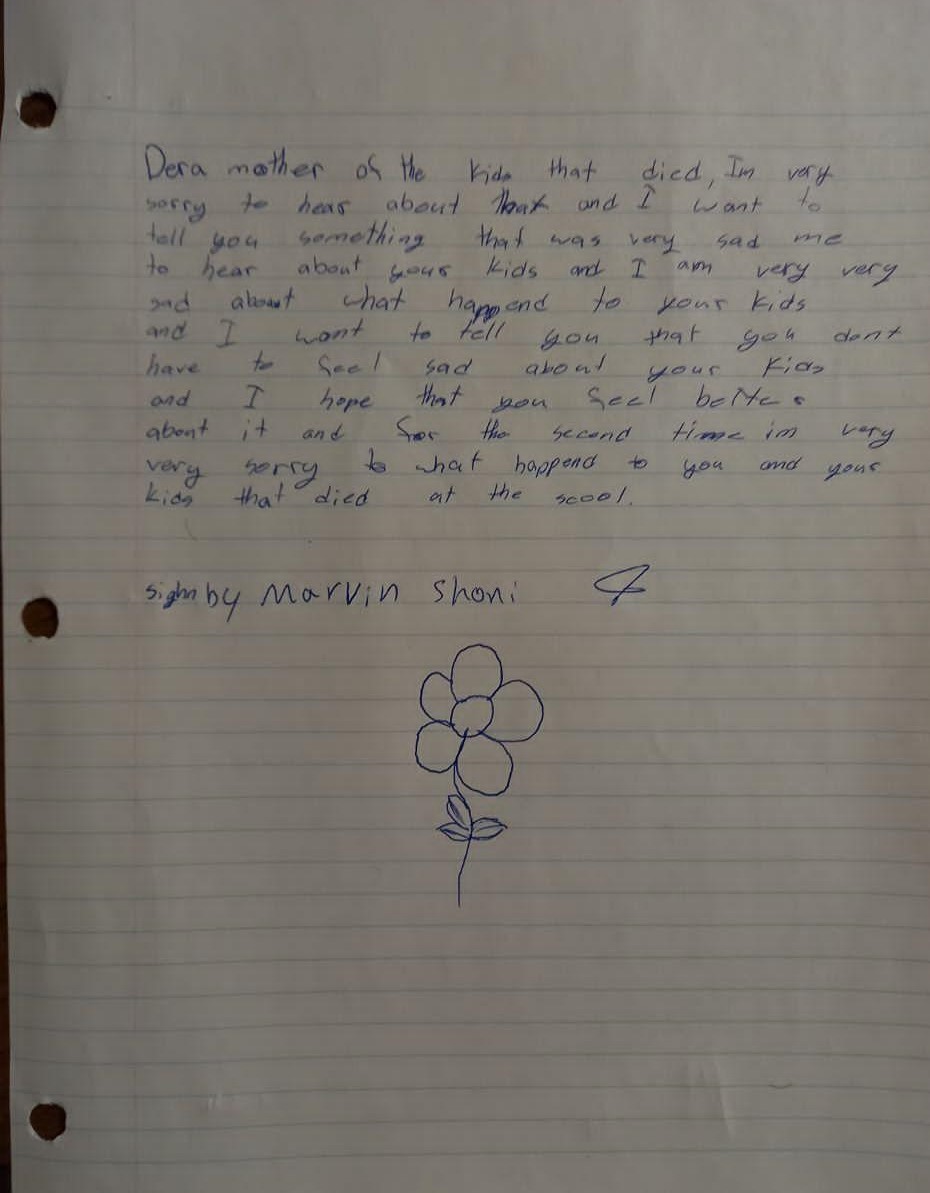 Dera mother of the kids that died, Im very
sorry to hear about that and I want to
tell you something that was very sad me
to hear about your kids and I am very very
sad about what happend to your kids
and I want to tell you that you dont
have to feel sad about your kids
and I hope that you feel better
about it and for the second time im very
very sorry to what happend to you and your
kids that died at the scool.
sighn by Marvin Shoni